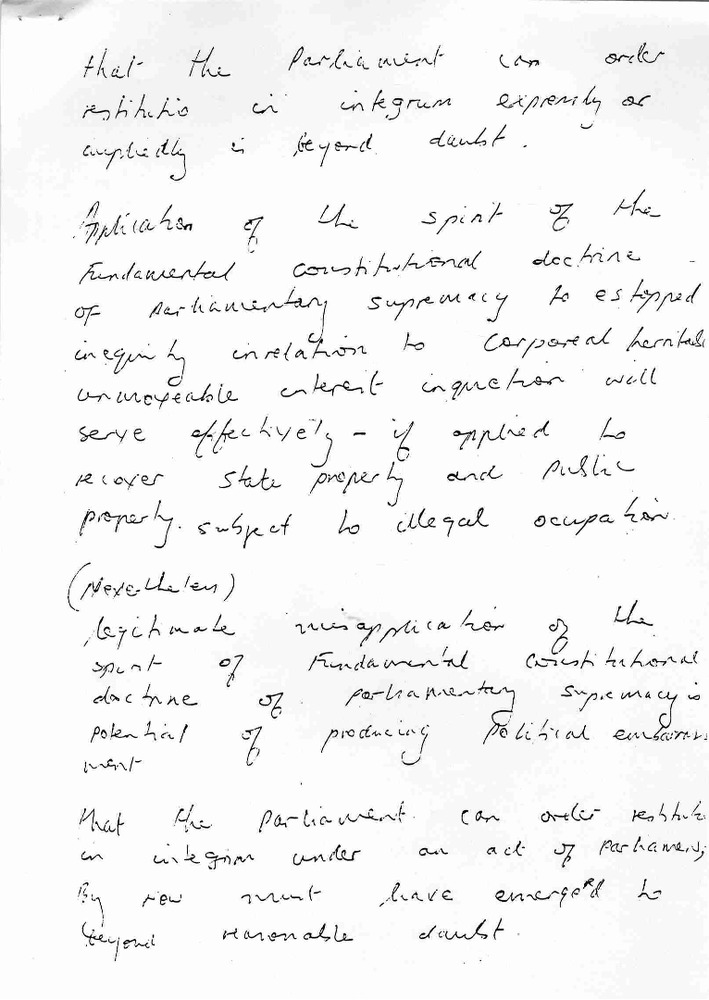 that the Parliament can order
restitutio in integrum expressly or
impliedly is beyond doubt.
Application of the spirit of the
Fundamental constitutional doctrine
of Parliamentary supremacy to estopped
inequity in relation to corporeal
unmoveable interest in question will
serve effectively - if applied to
recover state property and public
property. subject to illegal ocupation
(Nevertheless)
legitimate misapplication of the
spirit of Fundamental constitutional
doctrine of parliamentary supremacy is
potential of producing Political embarras
ment
that the Parliament can order restitutio
in integrum under an act of Parliament,
By now must have emerged to
beyond reasonable doubt.